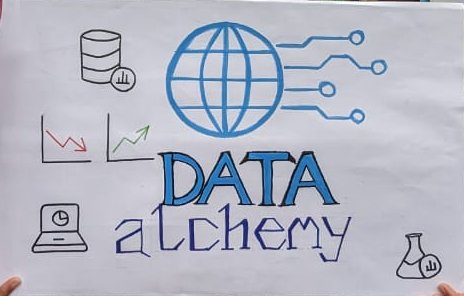 DATA
alchemy